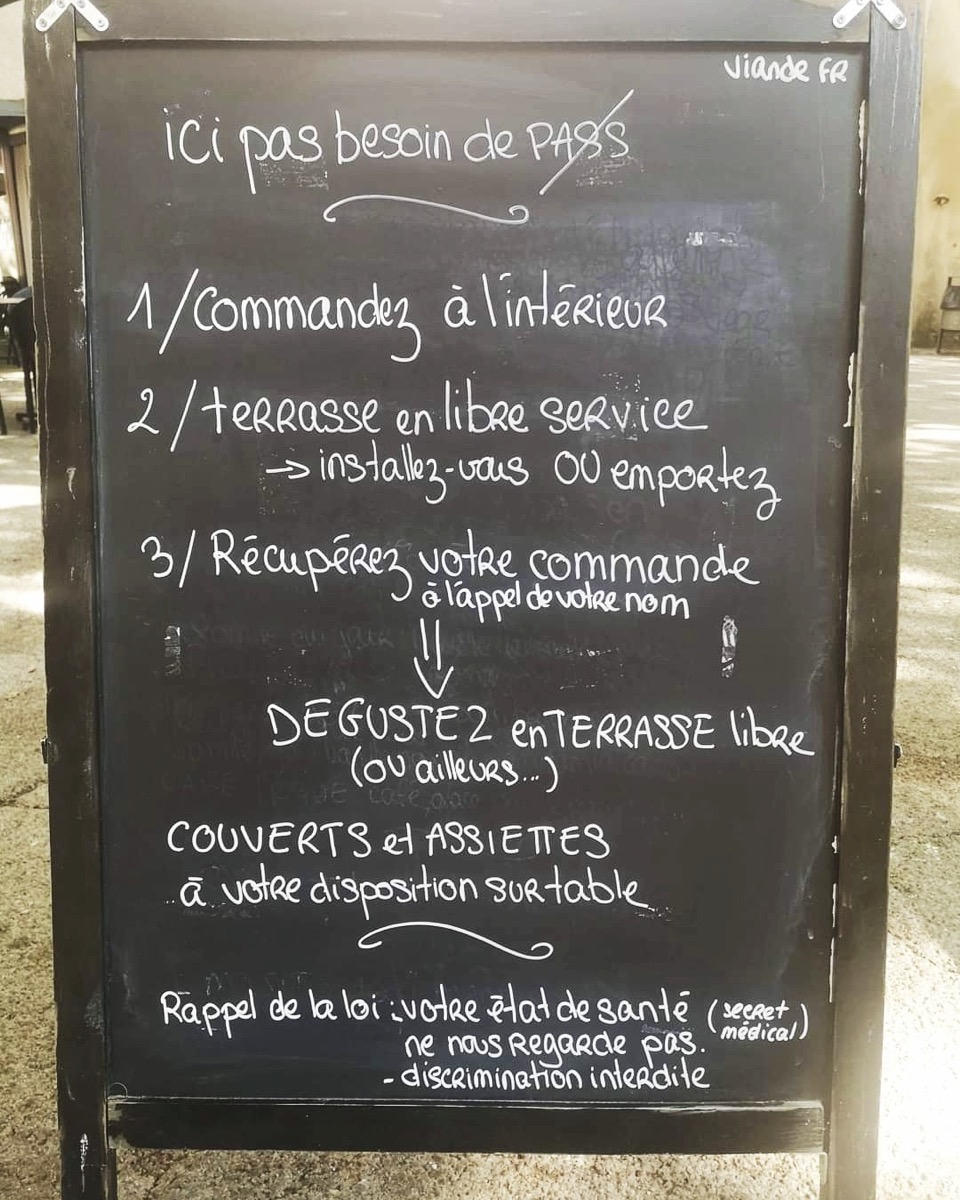 Viande FR
ici pas besoin de PASS
1/Commandez à l'intérieur
2/terrasse en libre service
→ installez-vous OU emportez
3/ Récupérez votre commande
à l'appel de votre nom
DEGUSTEZ en TERRASSE libre
(ou ailleurs...)
COUVERTS et ASSIETTES
à votre disposition sur table
Rappel de la loi : votre état de santé (secret médical)
ne nous regarde pas.
- discrimination interdite